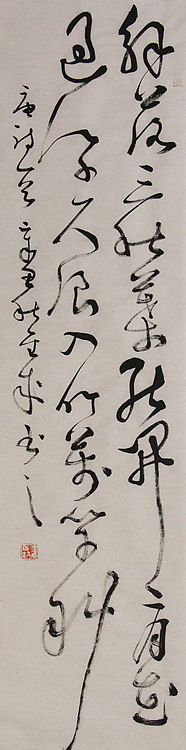 解落三秋葉能開二月花
過江千尺浪入竹萬竿斜
唐詩一首辛丑秋
書之